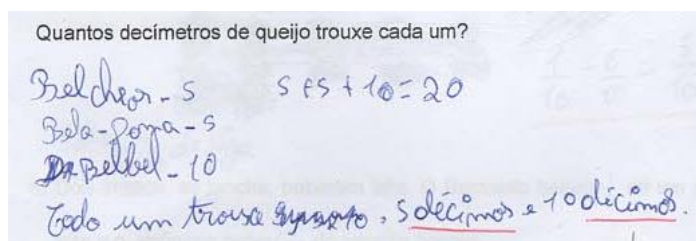 Quantos decímetros de queijo trouxe cada um?
Belchior - 5 5+5+10=20
Bela-Poma - 5
Dr Belbel - 10
Cada um trouxe, 5 décimos e 10 décimos.